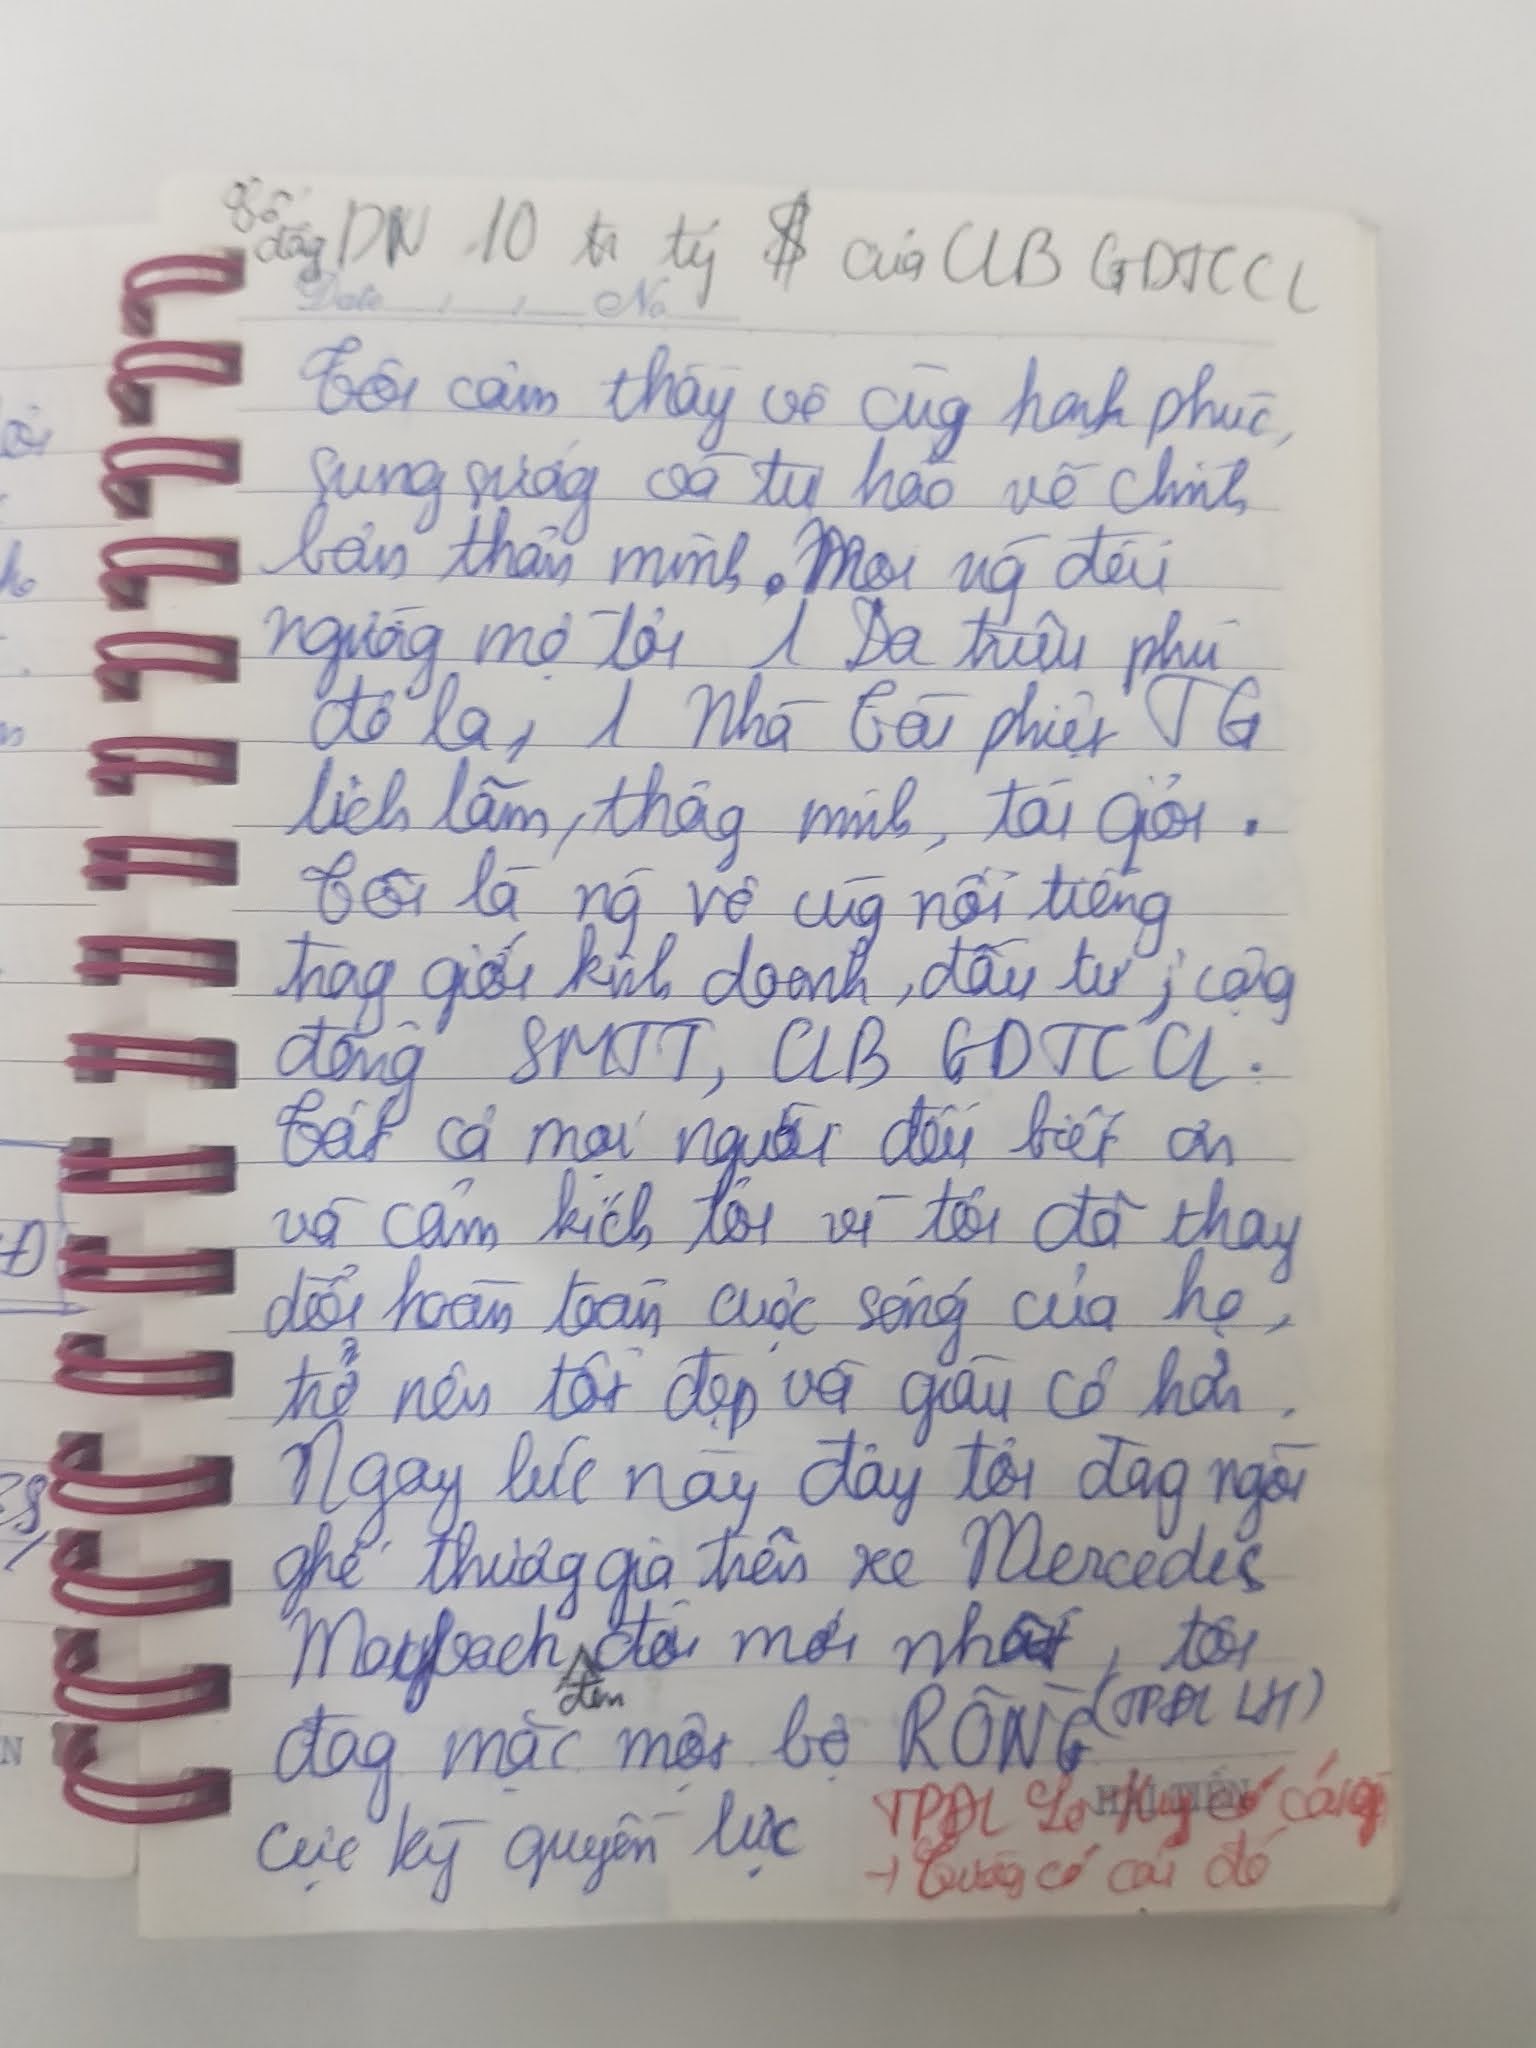 DN 10 tr tỷ $ của CLB GDTCCL
Date No
Tôi cảm thấy vô cùg hạnh phúc,
sung sướg và tự hào về chính
bản thân mình. Mọi ng đều
ngưỡg mộ tôi 1 Đa triệu phú
đô la, 1 Nhà Tài phiệt TG
lịch lãm, thôg minh, tài giỏi.
Tôi là ng vô cùg nổi tiếng
trog giới kinh doanh, đầu tư, cộng
đồng SMTT, CLB GDTCCL.
Tất cả mọi người đều biết ơn
và cảm kích tôi vì tôi đã thay
đổi hoàn toàn cuộc sống của họ,
trở nên tốt đẹp và giàu có hơn.
Ngay lúc này đây tôi đag ngồi
ghế thươg gia trên xe Mercedes
Maybach đen đời mới nhất, tôi
đag mặc một bộ RỒNG (TPĐL LH)
cực kỳ quyền lực
TPĐL Lê Huy có cái gì
→ Trườg có cái đó